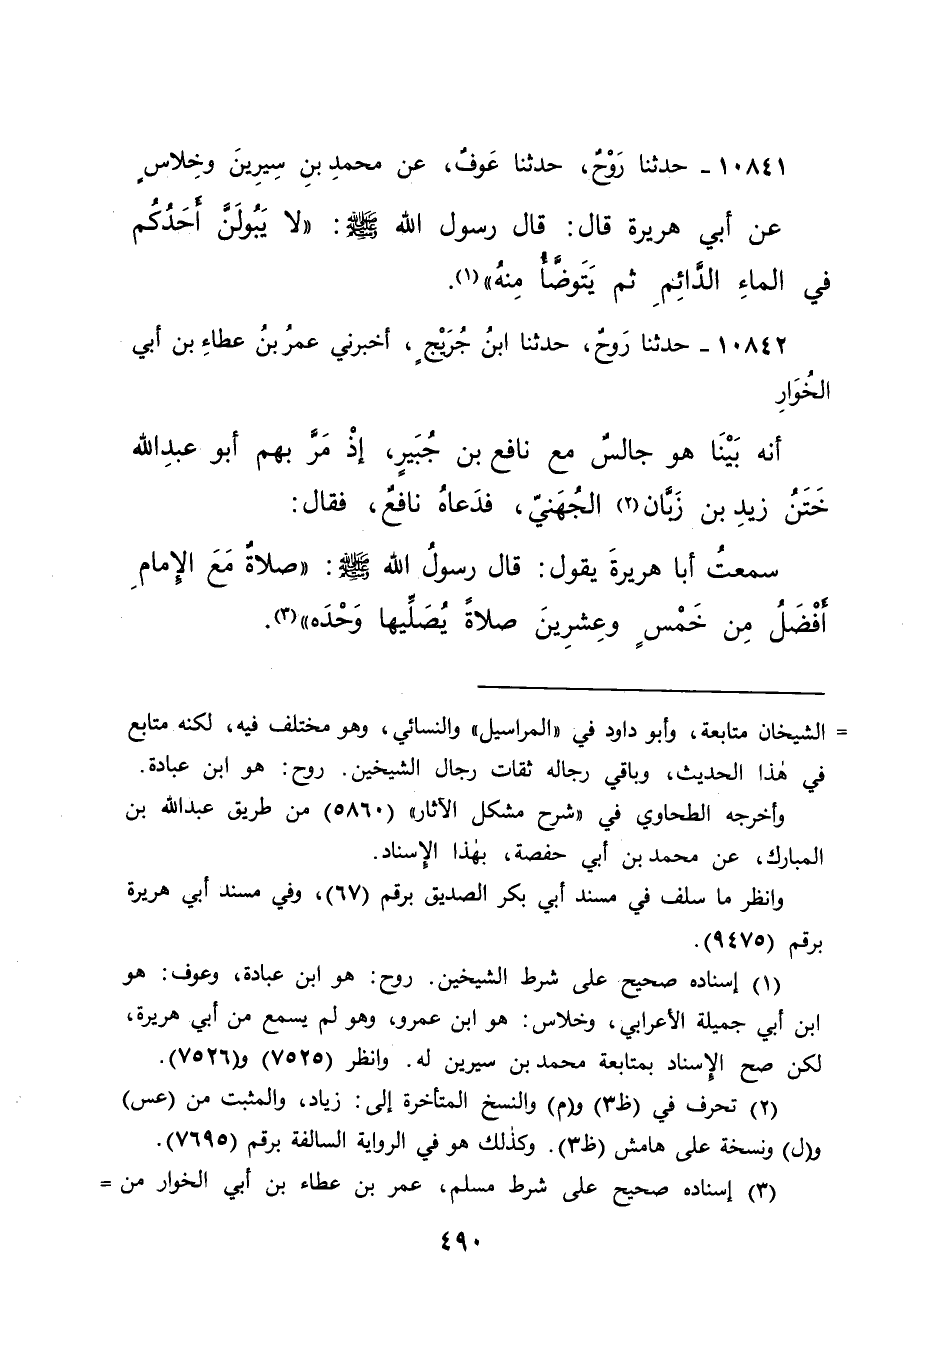 ١٠٨٤١ - حدثنا رَوْحٌ، حدثنا عَوفٌ، عن محمدِ بنِ سِيرِينَ وخِلاسٍ
عن أبي هريرة قال: قال رسول الله ﷺ: «لا يَبُولَنَّ أَحَدُكُم
في الماءِ الدَّائِمِ ثم يَتَوضَّأُ مِنهُ»(١).
١٠٨٤٢ - حدثنا رَوحٌ، حدثنا ابنُ جُرَيْجٍ، أخبرني عمرُ بنُ عطاءِ بن أبي
الخُوَارِ
أنه بَيْنَا هو جالسٌ مع نافع بن جُبَيرٍ، إذْ مَرَّ بهم أبو عبدِالله
خَتَنُ زيدِ بن زَبَّان(٢) الجُهَنيّ، فدَعاهُ نافعٌ، فقال:
سمعتُ أبا هريرةَ يقول: قال رسولُ الله ﷺ: «صلاةٌ مَعَ الإِمامِ
أَفْضَلُ مِن خَمْسٍ وعِشرِينَ صلاةً يُصَلِّيها وَحْدَه»(٣).
= الشيخان متابعة، وأبو داود في «المراسيل» والنسائي، وهو مختلف فيه، لكنه متابع
في هٰذا الحديث، وباقي رجاله ثقات رجال الشيخين. روح: هو ابن عبادة.
وأخرجه الطحاوي في «شرح مشكل الآثار» (٥٨٦٠) من طريق عبدالله بن
المبارك، عن محمد بن أبي حفصة، بهٰذا الإِسناد.
وانظر ما سلف في مسند أبي بكر الصديق برقم (٦٧)، وفي مسند أبي هريرة
برقم (٩٤٧٥).
(١) إسناده صحيح على شرط الشيخين. روح: هو ابن عبادة، وعوف: هو
ابن أبي جميلة الأعرابي، وخلاس: هو ابن عمرو، وهو لم يسمع من أبي هريرة،
لكن صح الإِسناد بمتابعة محمد بن سيرين له. وانظر (٧٥٢٥) و(٧٥٢٦).
(٢) تحرف في (ظ٣) و(م) والنسخ المتأخرة إلى: زياد، والمثبت من (عس)
و(ل) ونسخة على هامش (ظ٣). وكذٰلك هو في الرواية السالفة برقم (٧٦٩٥).
(٣) إسناده صحيح على شرط مسلم، عمر بن عطاء بن أبي الخوار من =
٤٩٠